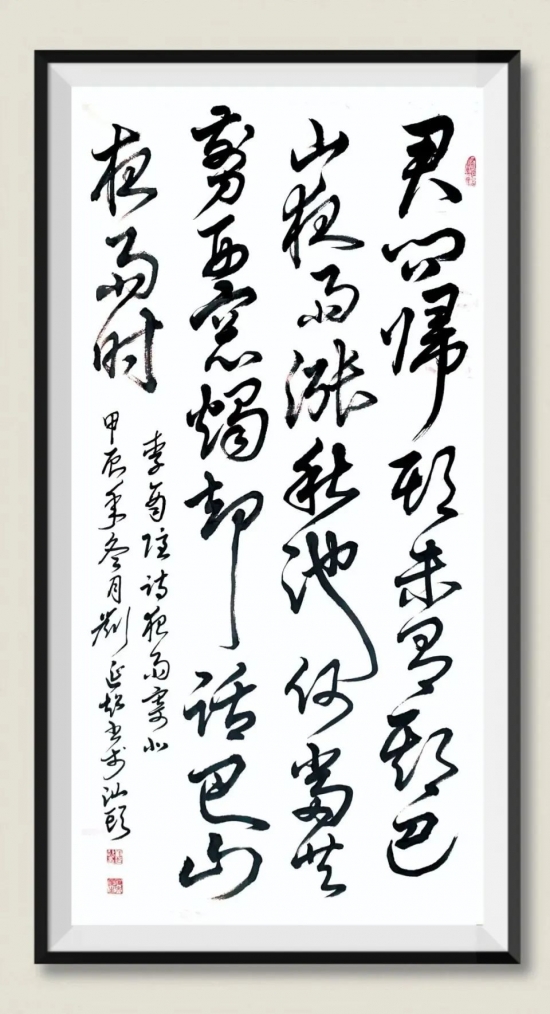 君问帰期未有期巴
山夜雨涨秋池何当共
剪西窓燭却话巴山
夜雨时
李商隐诗夜雨寄北
甲辰年冬月刘延书于汕头